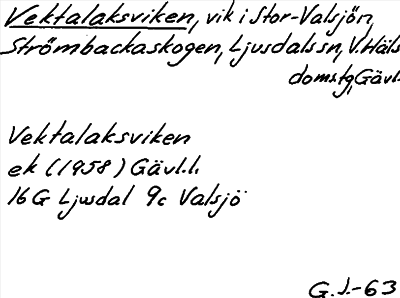 Vektalaksviken, vik i Stor-Valsjön,
Strömbackaskogen, Ljusdals sn, V. Häls
doms.tg, Gävl.
Vektalaksviken
ek (1958) Gävl.l.
16G Ljusdal 9c Valsjö
G. J.-63